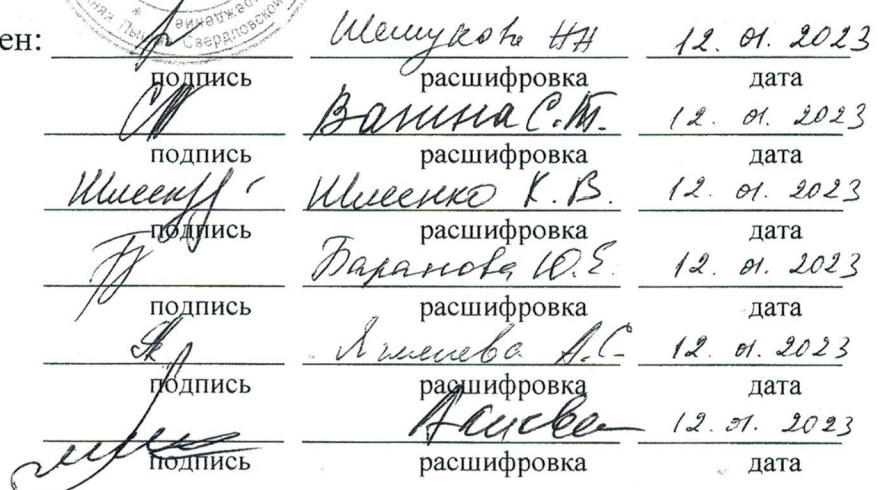 Свердловской
ен: Шешукова НН 12. 01. 2023
подпись расшифровка дата
Ванина С.Т. 12. 01. 2023
подпись расшифровка дата
Шленко К. В. 12. 01. 2023
подпись расшифровка дата
Баранова Ю.Е. 12. 01. 2023
подпись расшифровка дата
А.С. 12. 01. 2023
подпись расшифровка дата
12. 01. 2023
подпись расшифровка дата